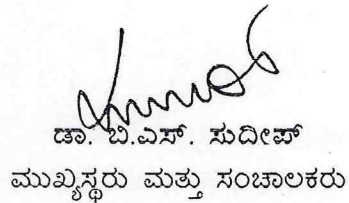 ಡಾ. ಬಿ.ಎಸ್. ಸುದೀಪ್
ಮುಖ್ಯಸ್ಥರು ಮತ್ತು ಸಂಚಾಲಕರು